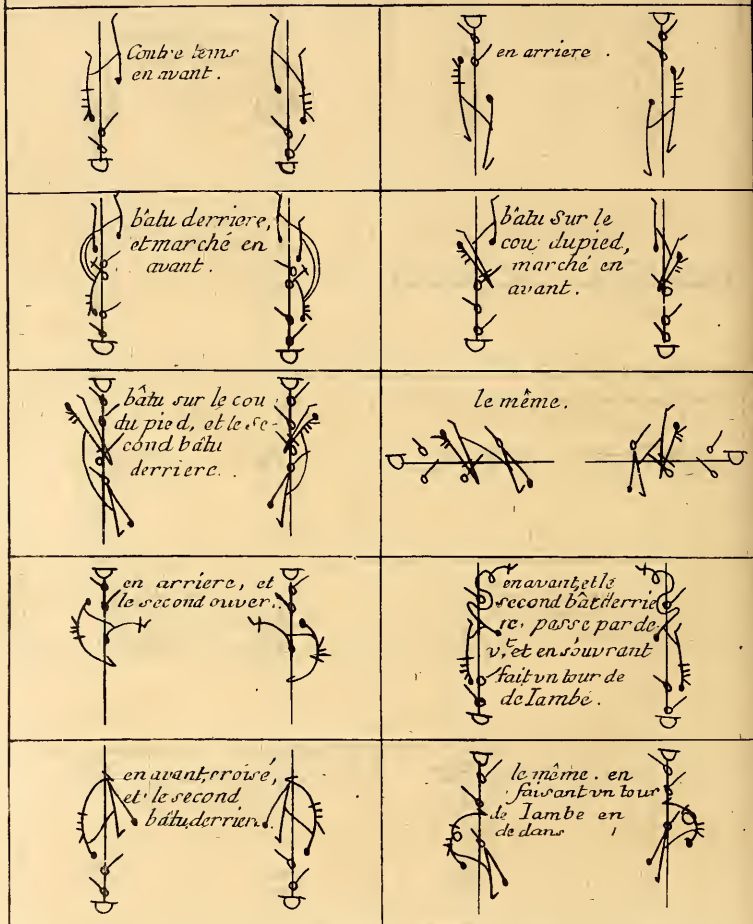 Contre tems
en avant.
en arriere.
bâtu derriere,
et marché en
avant.
bâtu Sur le
cou du pied,
marché en
avant.
bâtu sur le cou
du pied, et le se-
cond bâtu
derriere.
le même.
en arriere, et
le second ouver.
en avant, et le
second bât derrie
re, passe par de-
v,t et en s'ouvrant
fait vn tour de
de Iambe.
en avant, croisé,
et le second
bâtu, derrier.
le même. en
faisant vn tour
de Iambe en
de dans